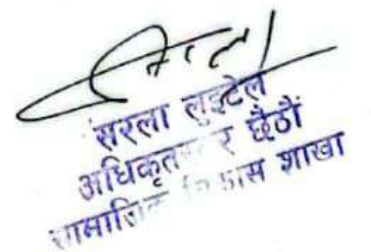 सरला लुइटेल
अधिकृत र छैठौं
सामाजिक विकास शाखा